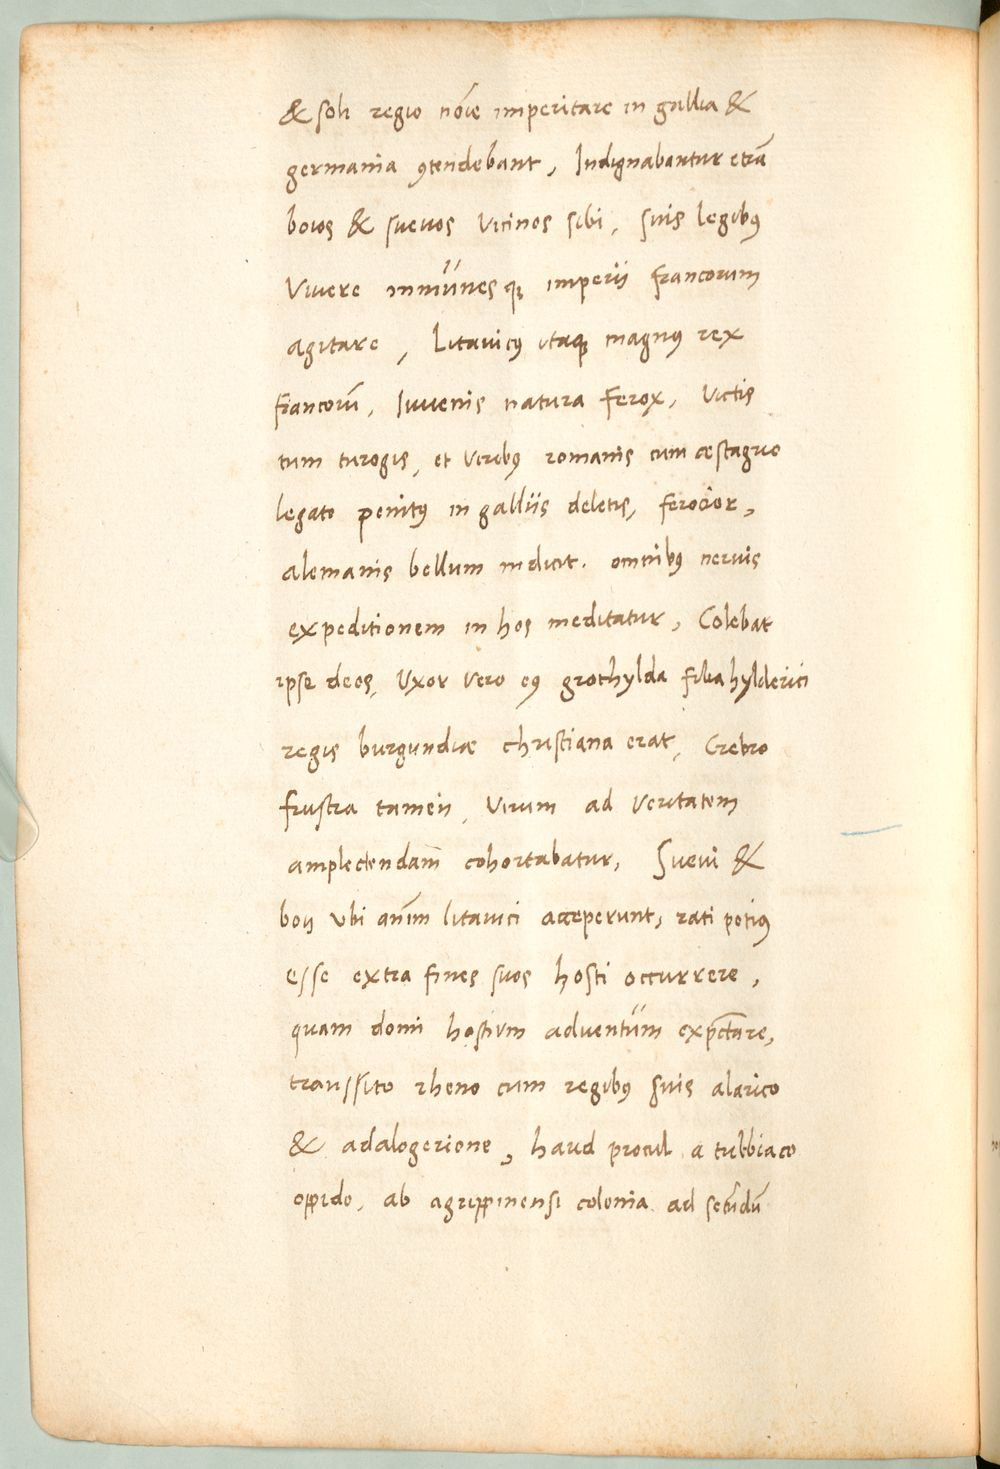 & soli regio nōīe imperitare in gallia &
germania ꝯtendebant, Indignabantur etiā
boios & sueuos vicinos sibi, suis legibꝰ
Viuere inmūnes qꝫ imperii francorum
agitare, Litauicꝰ itaqꝫ magnꝰ rex
francorū, Iuuenis natura ferox, victis
tum turogis, et viribꝰ romanis cum æstagrio
legato penitꝰ in galliis deletis, ferocior,
alemanis bellum indicit. omnibꝰ neruis
expeditionem in hos meditatur, Colebat
ipse deos, Vxor vero eꝰ grothylda filia hylderici
regis burgundiæ christiana erat, Crebro
frustra tamen, virum ad veritatem
amplectendam cohortabatur, Sueui &
boii vbi anīm litauici acceperunt, rati potiꝰ
esse extra fines suos hosti occurrere,
quam domi hostium aduentum expctare,
transsito rheno cum regibꝰ suis alarico
& adalogerione, haud procul a tulbiaco
oppido, ab agrippinensi colonia ad secūdū